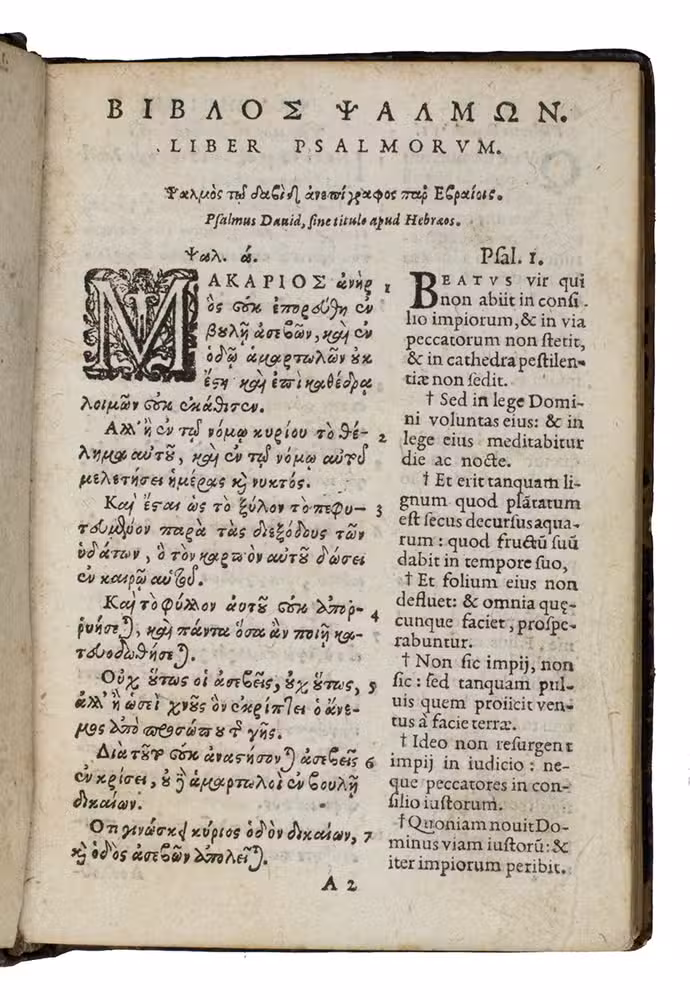 ΒΙΒΛΟΣ ΨΑΛΜΩΝ.
LIBER PSALMORVM.
Ψαλμὸς τῷ δαβὶδ ἀνεπίγραφος παρ' Εβραίοις.
Psalmus Dauid, sine titulo apud Hebræos.
Ψαλ. ά.
ΜΑΚΑΡΙΟΣ ἀνὴρ 1
ὃς οὐκ ἐπορεύθη ἐν
βουλῇ ἀσεβῶν, καὶ ἐν
ὁδῷ ἁμαρτωλῶν οὐκ
ἔστη καὶ ἐπὶ καθέδρᾳ
λοιμῶν οὐκ ἐκάθισεν.
Αλλ' ἢ ἐν τῷ νόμῳ κυρίου τὸ θέ- 2
λημα αὐτοῦ, καὶ ἐν τῷ νόμῳ αὐτοῦ
μελετήσει ἡμέρας καὶ νυκτός.
Καὶ ἔσται ὡς τὸ ξύλον τὸ πεφυ- 3
τευμένον παρὰ τὰς διεξόδους τῶν
ὑδάτων, ὃ τὸν καρπὸν αὐτοῦ δώσει
ἐν καιρῷ αὐτοῦ.
Καὶ τὸ φύλλον αὐτοῦ οὐκ ἀποῤ- 4
ῥυήσεται, καὶ πάντα ὅσα ἂν ποιῇ κα-
τευοδωθήσεται.
Οὐχ οὕτως οἱ ἀσεβεῖς, οὐχ οὕτως, 5
ἀλλ' ἢ ὡσεὶ χνοῦς ὃν ἐκρίπτει ὁ ἄνε-
μος ἀπὸ προσώπου τῆς γῆς.
Διὰ τοῦτο οὐκ ἀναστήσονται ἀσεβεῖς 6
ἐν κρίσει, οὐδὲ ἁμαρτωλοὶ ἐν βουλῇ
δικαίων.
Οτι γινώσκει κύριος ὁδὸν δικαίων, 7
καὶ ὁδὸς ἀσεβῶν ἀπολεῖται.
Psal. 1.
BEATVS vir qui
non abiit in consi-
lio impiorum, & in via
peccatorum non stetit,
& in cathedra pestilen-
tiæ non sedit.
† Sed in lege Domi-
ni voluntas eius: & in
lege eius meditabitur
die ac nocte.
† Et erit tanquam li-
gnum quod plātatum
est secus decursus aqua-
rum : quod fructū suū
dabit in tempore suo,
† Et folium eius non
defluet: & omnia quę-
cunque faciet, prospe-
rabuntur.
† Non sic impij, non
sic : sed tanquam pul-
uis quem proiicit ven-
tus à facie terræ.
† Ideo non resurgent
impij in iudicio : ne-
que peccatores in con-
silio iustorum.
† Quoniam nouit Do-
minus viam iustorū: &
iter impiorum peribit.
A 2